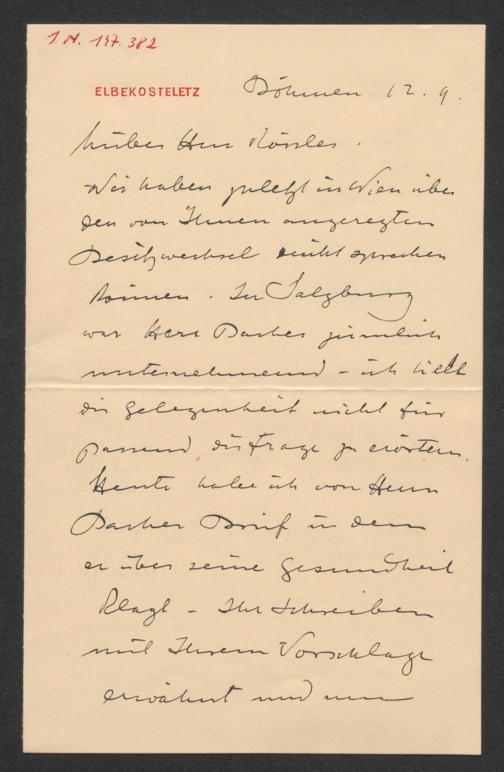 I.N. 147.382
ELBEKOSTELETZ Böhmen 12. 9.
Lieber Herr Rössler.
Wir haben zuletzt in Wien über
den von Ihnen angeregten
Besitzwechsel nicht sprechen
können. In Salzburg
war Herr ziemlich
unternehmend – ich hielt
die Gelegenheit nicht für
passend, die Frage zu erörtern.
Heute habe ich von Herrn
Brief in dem
er über seine Gesundheit
klagt – Ihr Schreiben
mit Ihrem Vorschlage
erwähnt und